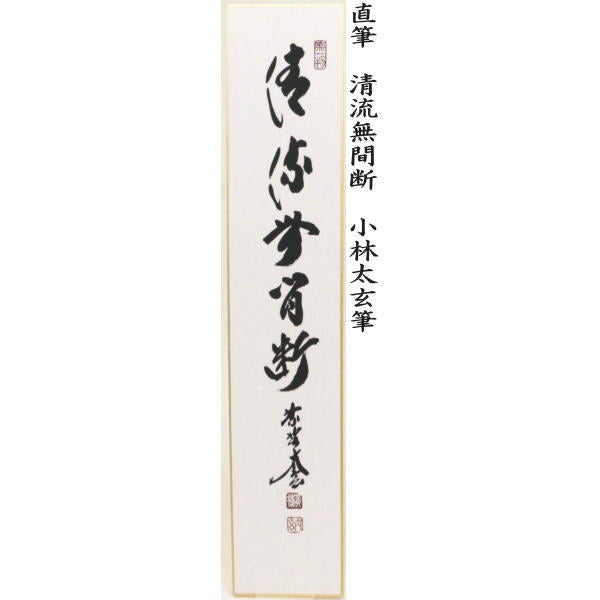 直筆 清流無間断 小林太玄筆
清流無間断